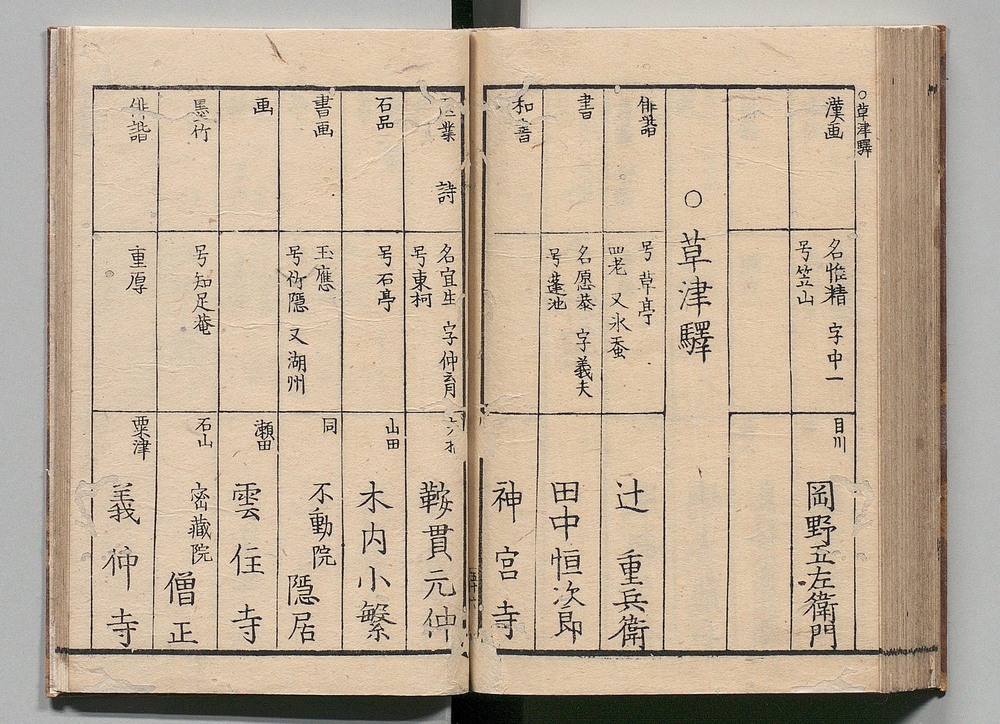 ○草津驛
漢画
名惟精 字中一
号笠山
目川
岡野五左衛門
○草津驛
俳諧
号草亭
四老 又氷蚕
辻 重兵衛
書
名愿恭 字義夫
号蓮池
田中恒次郎
和書
神宮寺
医業 詩
名宜生 字仲育
号東柯
鞍貫元仲
石品
号石亭
山田
木内小繁
書画
玉應
号竹隠 又湖州
同
不動院
隠居
画
瀬田
雲住寺
墨竹
号知足菴
石山
密藏院
僧正
俳諧
重厚
粟津
義仲寺